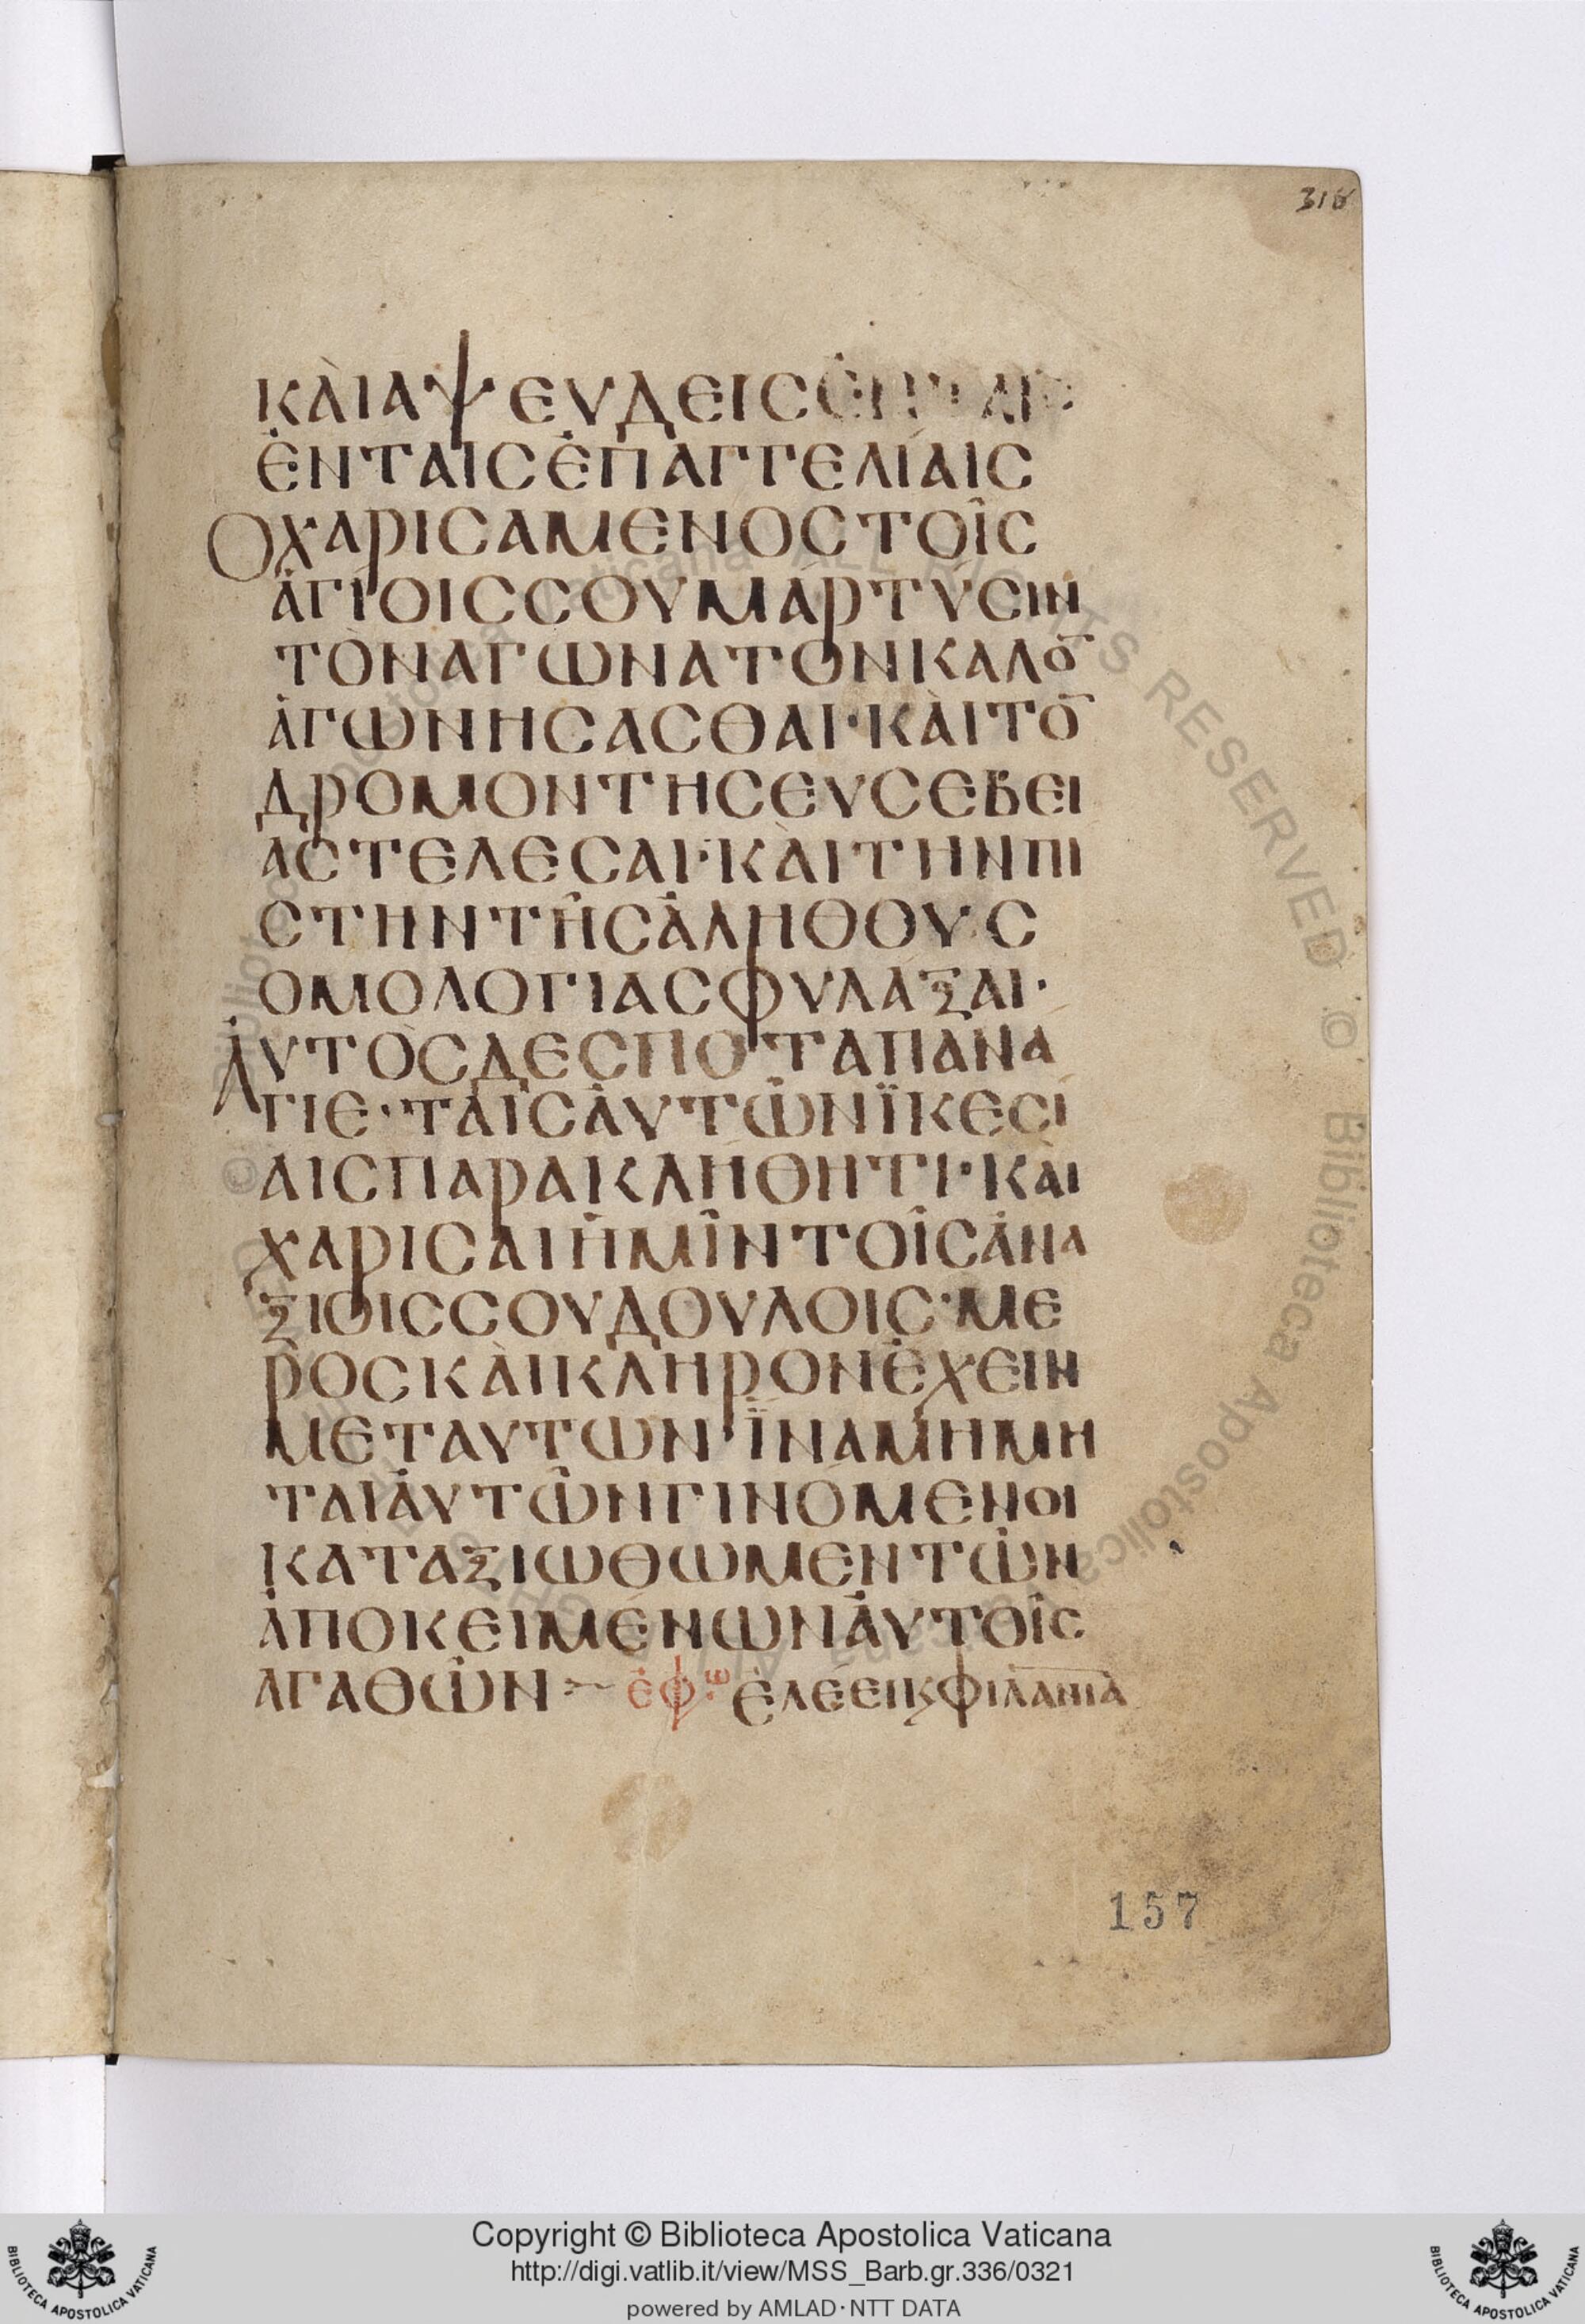 318
ΚᾺΙΑΨΕΥΔΕΙC
ἘΝΤΑΙCἘΠΑΓΓΕΛΊΑΙC
ΟΧΑΡΙCΑΜΕΝΟCΤΟΙ͂C
ἉΓΊΟΙCCΟΥΜΆΡΤΥCΙΝ
ΤῸΝΑΓΩΝΑΤΟΝΚΑΛΟ̅
ἈΓΩΝΗCΑCΘΑΙ·ΚᾺΙΤΟ̅
ΔΡΟΜΟΝΤΗCΕΥCΕΒΕΙ
ΑCΤΕΛΕCΑΙ·ΚᾺΙΤΗΝΠΙ
CΤΗΝΤΗ͂CἈΛΗΘΟΥ·C
ΟΜΟΛΟΓΙΑCΦΥΛΑΞΑΙ·
ἈΥΤῸCΔΕCΠΟΤΑΠΑΝΑ
ΓΙΕ·ΤΑΙCἈΥΤΩ͂ΝΪΚΕCΊ
ΑΙCΠΑΡΑΚΛΗΘΗΤΙ·ΚᾺΙ
ΧΑΡΙCΑΙἩΜΙ͂ΝΤΟΙ͂CἈΝΑ
ΞΙΟΙCCΟΥΔΟΥΛΟΙC·ΜΕ
ΡΟCΚᾺΙΚΛΗΡΟΝἘΧΕΙΝ
ΜΕΤΑΥΤΩΝ·ΪΝΑΜΗΜΗ
ΤΑΙἈΥΤΩ͂ΝΓΙΝΌΜΕΝΟΙ
ΚΑΤΑΞΙΩΘΩΜΕΝΤΩ͂Ν
ἈΠΟΚΕΙΜΈΝΩΝἈΥΤΟΙ͂C
ΑΓΑΘΩ͂Ν ἘΦ·Ω ἘΛΈΕΙΚϚΦΙΛΑΝΙΑ
157
Copyright © Biblioteca Apostolica Vaticana
http://digi.vatlib.it/view/MSS_Barb.gr.336/0321
powered by AMLAD·NTT DATA
BIBLIOTECA APOSTOLICA VATICANA
BIBLIOTECA APOSTOLICA VATICANA